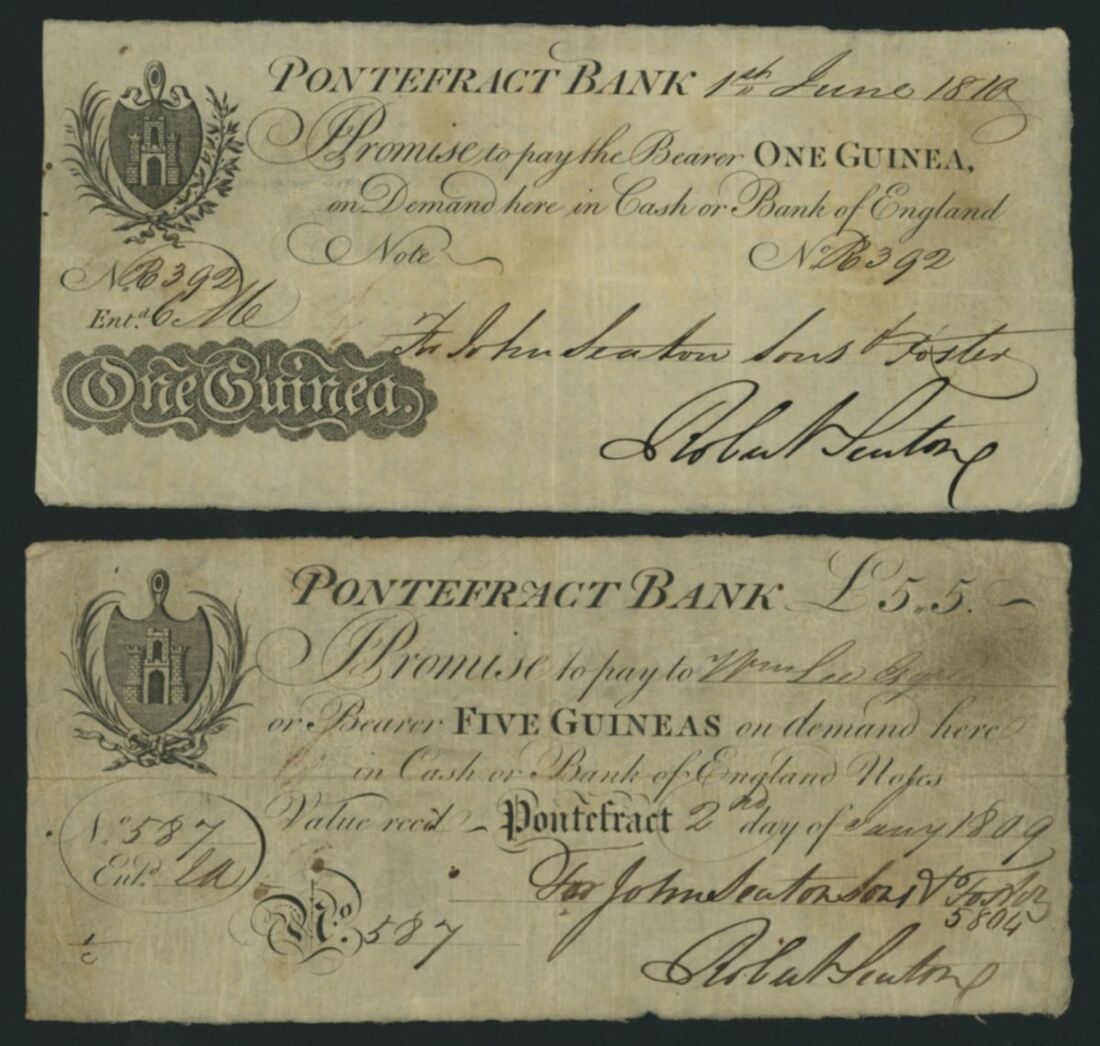 PONTEFRACT BANK 1st June 1810
I Promise to pay the Bearer ONE GUINEA,
on Demand here in Cash or Bank of England
Note No. R392
No. R392
Ent.d
For John Seaton Sons & Foster
One Guinea.
Robert Seaton
PONTEFRACT BANK £5"5.
I Promise to pay to Wm Lee Esqr
or Bearer FIVE GUINEAS on demand here
in Cash or Bank of England Notes
Value rec'd Pontefract 2nd day of Jany 1809
No. 587
Ent.d
For John Seaton Sons & Foster
5804
No. 587
Robert Seaton